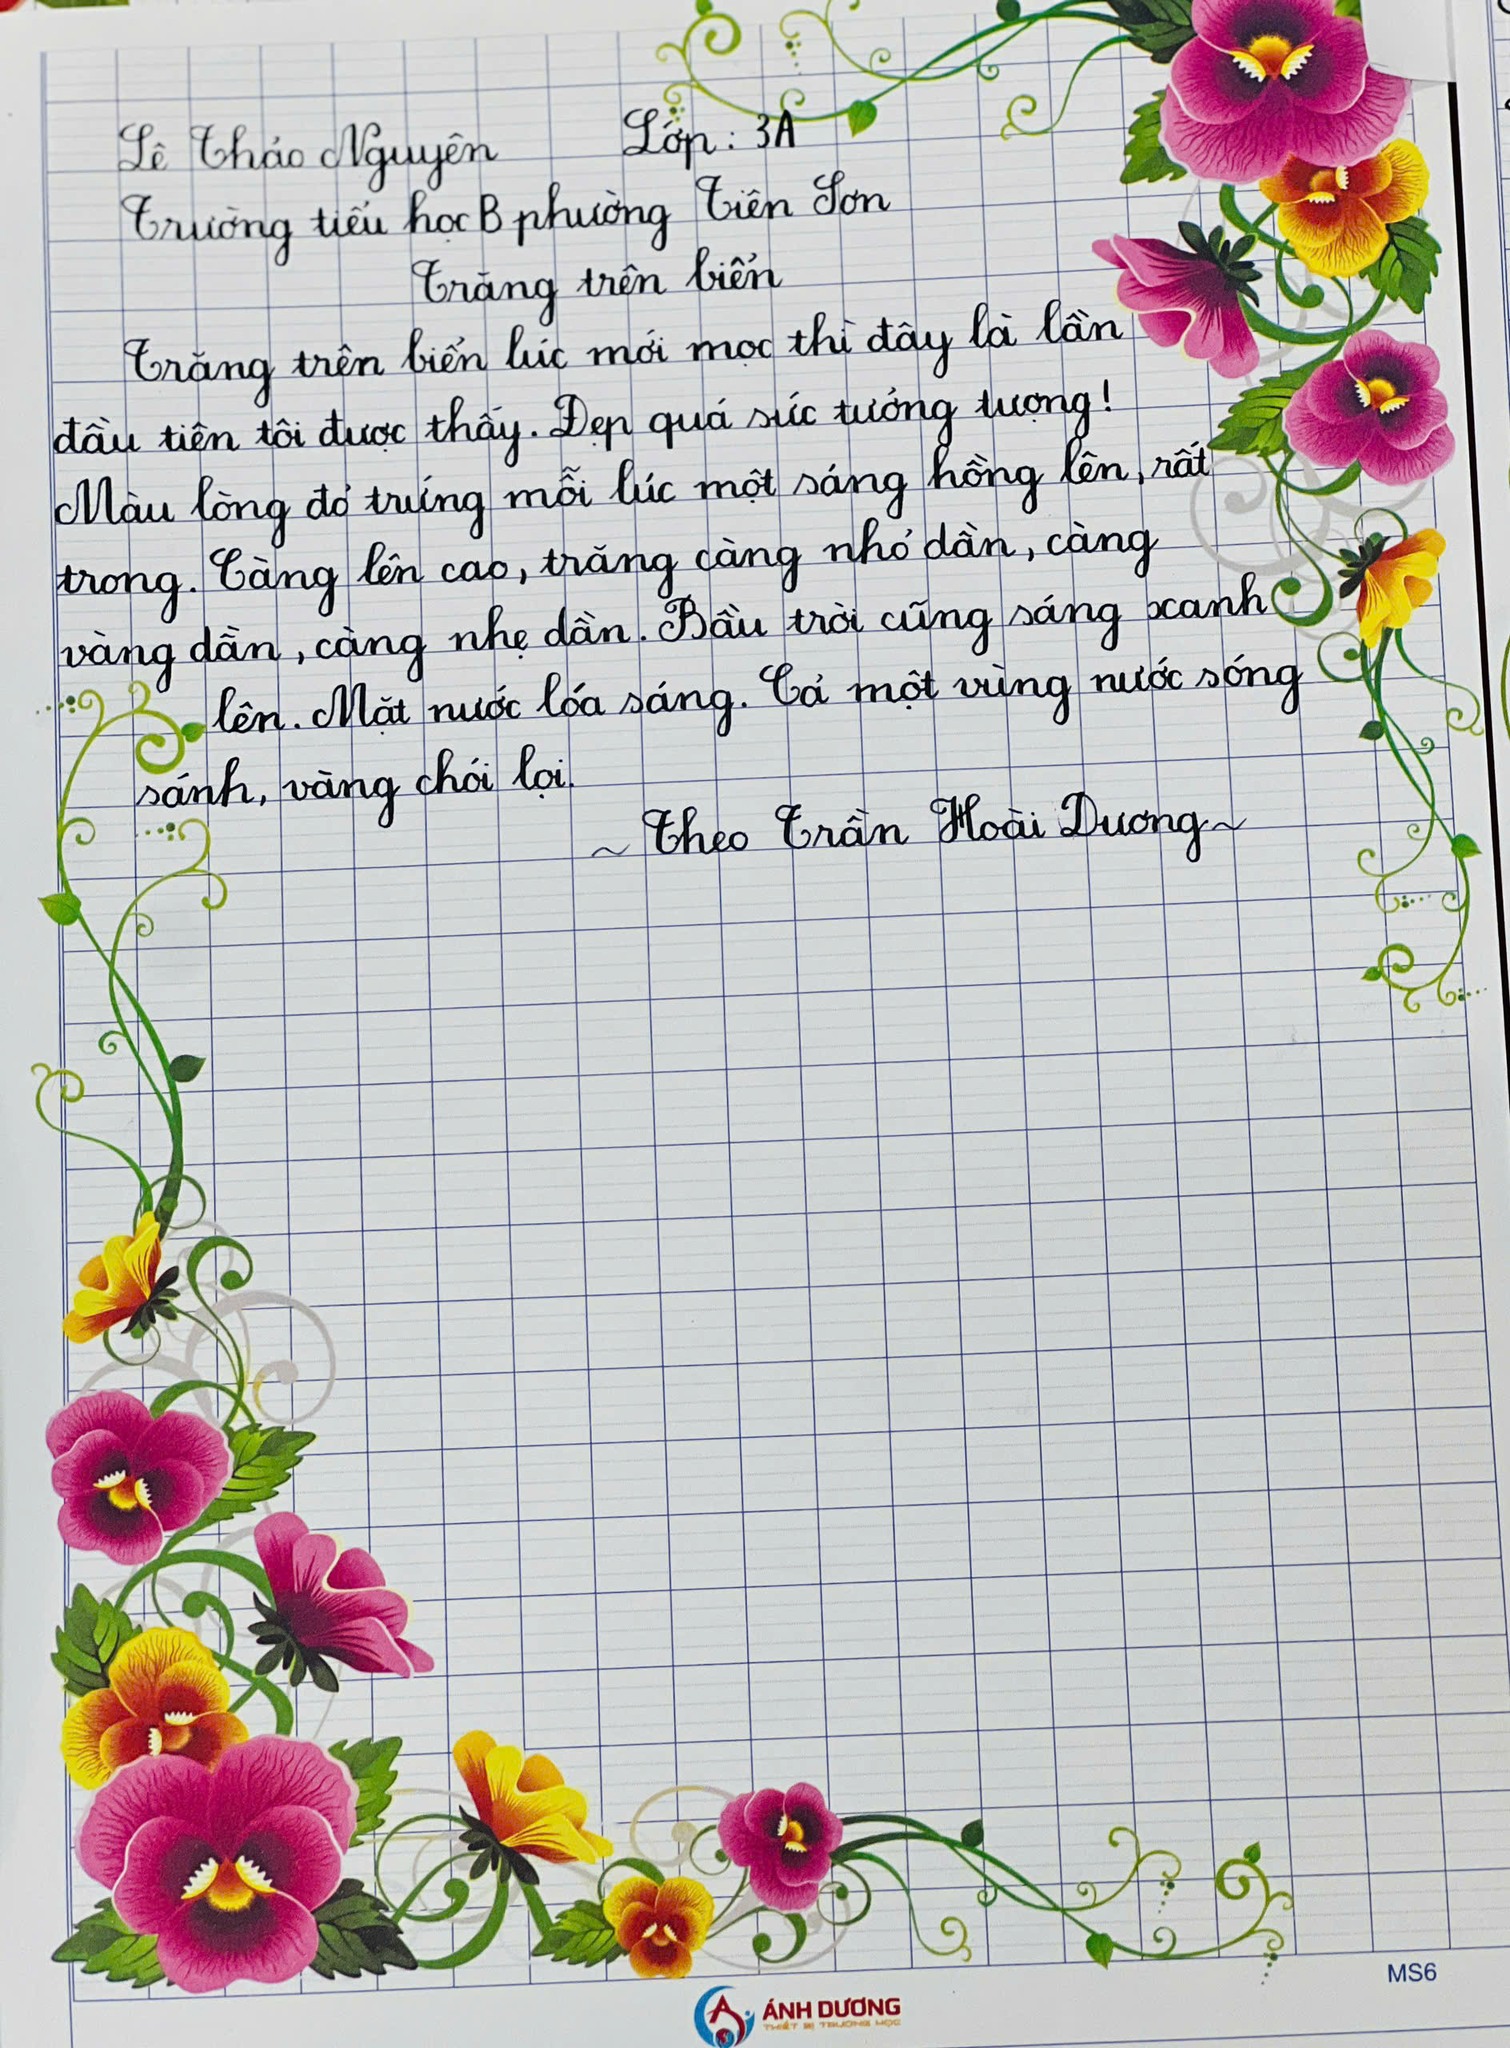 Lê Thảo Nguyên Lớp: 3A
Trường tiểu học B phường Tiên Sơn
Trăng trên biển
Trăng trên biển lúc mới mọc thì đây là lần
đầu tiên tôi được thấy. Đẹp quá sức tưởng tượng!
Màu lòng đỏ trứng mỗi lúc một sáng hồng lên, rất
trong. Càng lên cao, trăng càng nhỏ dần, càng
vàng dần, càng nhẹ dần. Bầu trời cũng sáng xanh
lên. Mặt nước lóa sáng. Cả một vùng nước sóng
sánh, vàng chói lọi.
~ Theo Trần Hoài Dương ~
MS6
ÁNH DƯƠNG
THIẾT BỊ TRƯỜNG HỌC